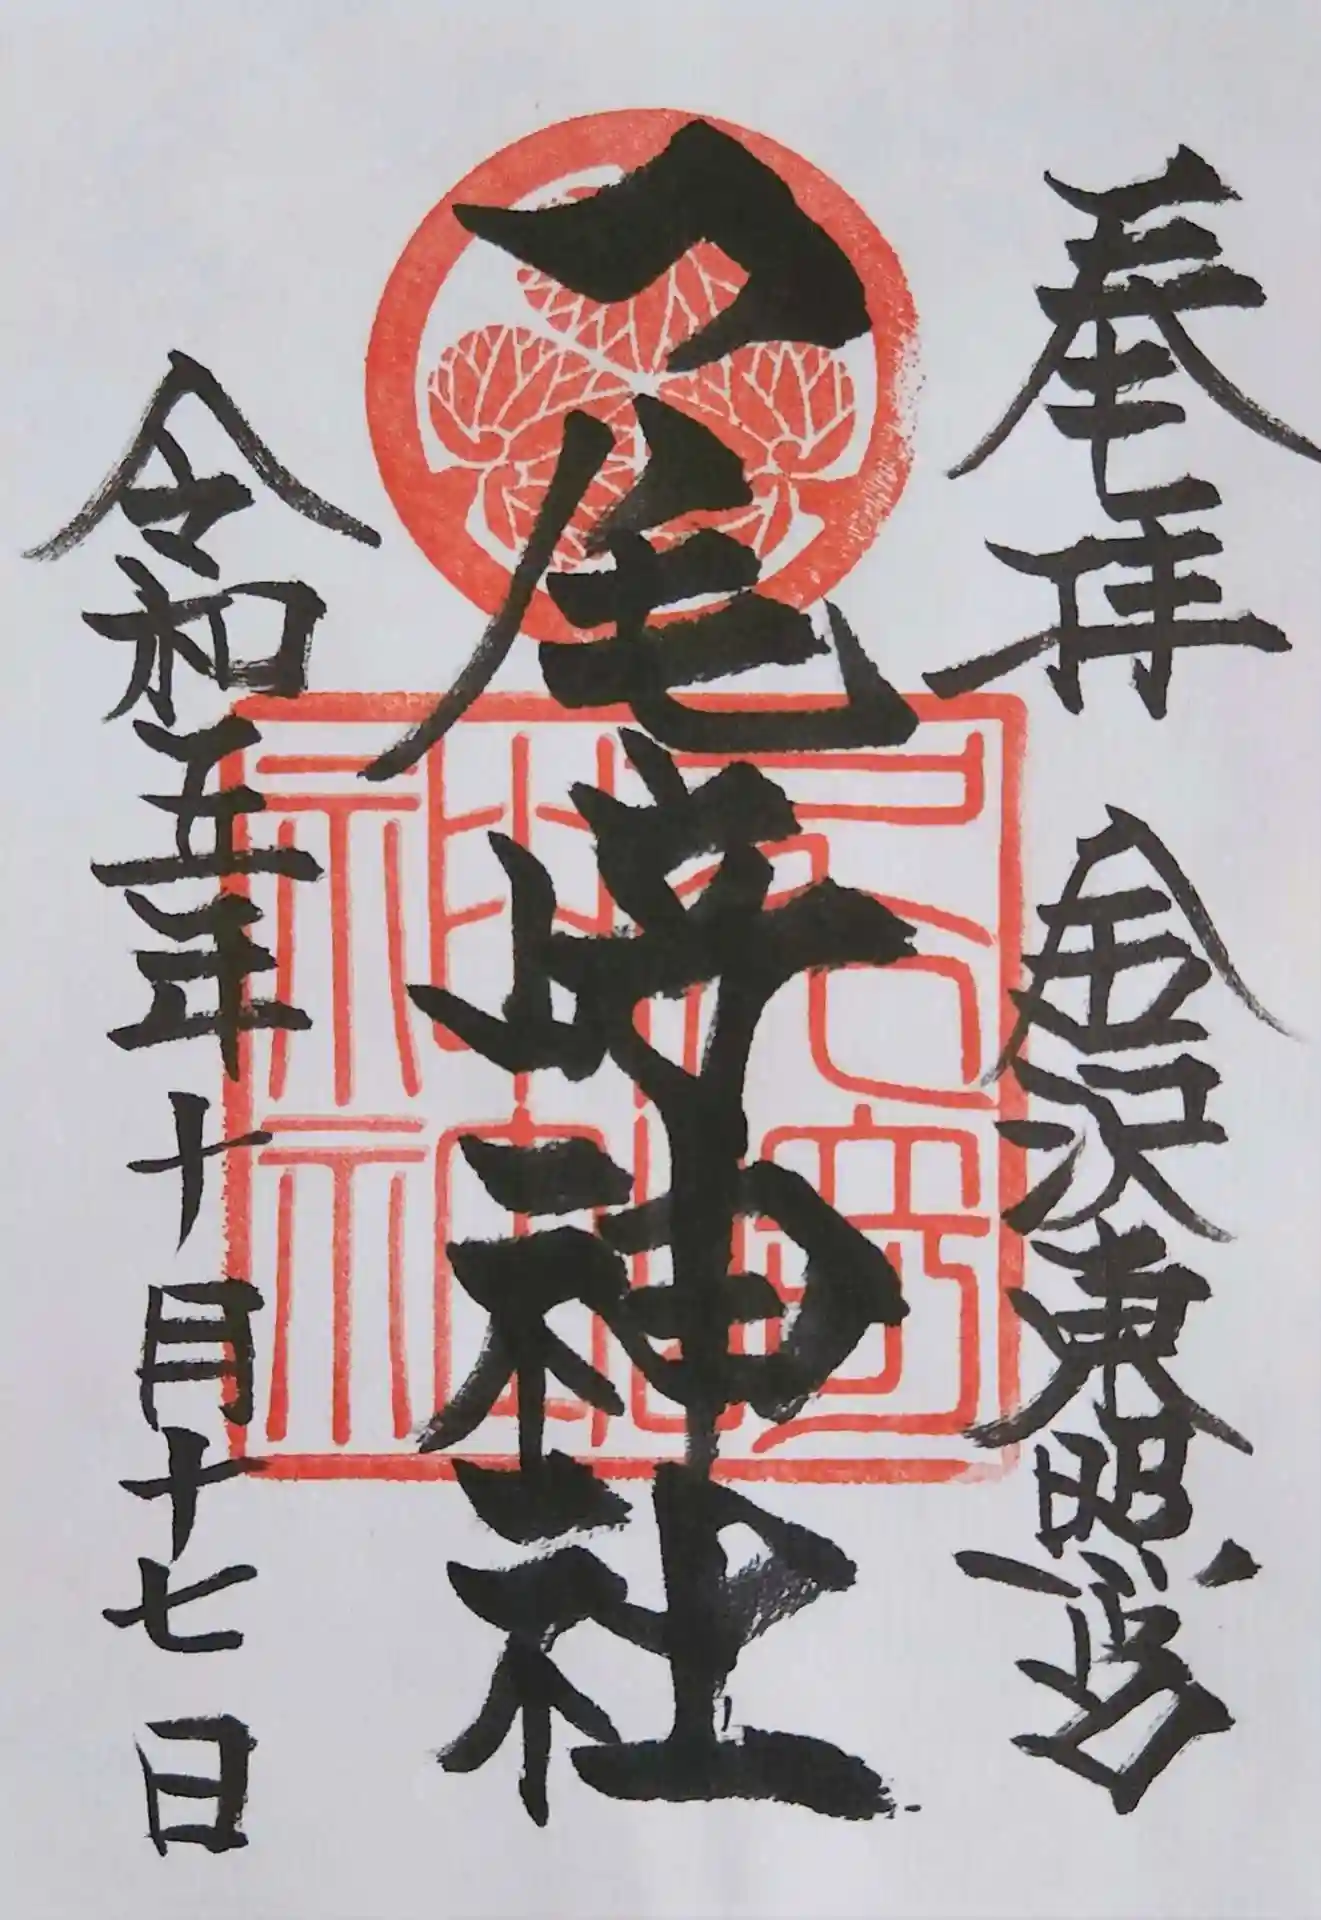 奉拝
金沢東照宮
尾﨑神社
令和五年十月十七日
尾崎神社